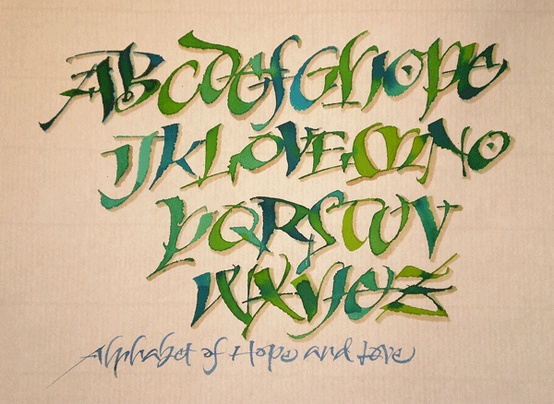 ABCdefGhope
IJKLOVEMNO
PQRSTUV
WXY&Z
Alphabet of Hope and Love